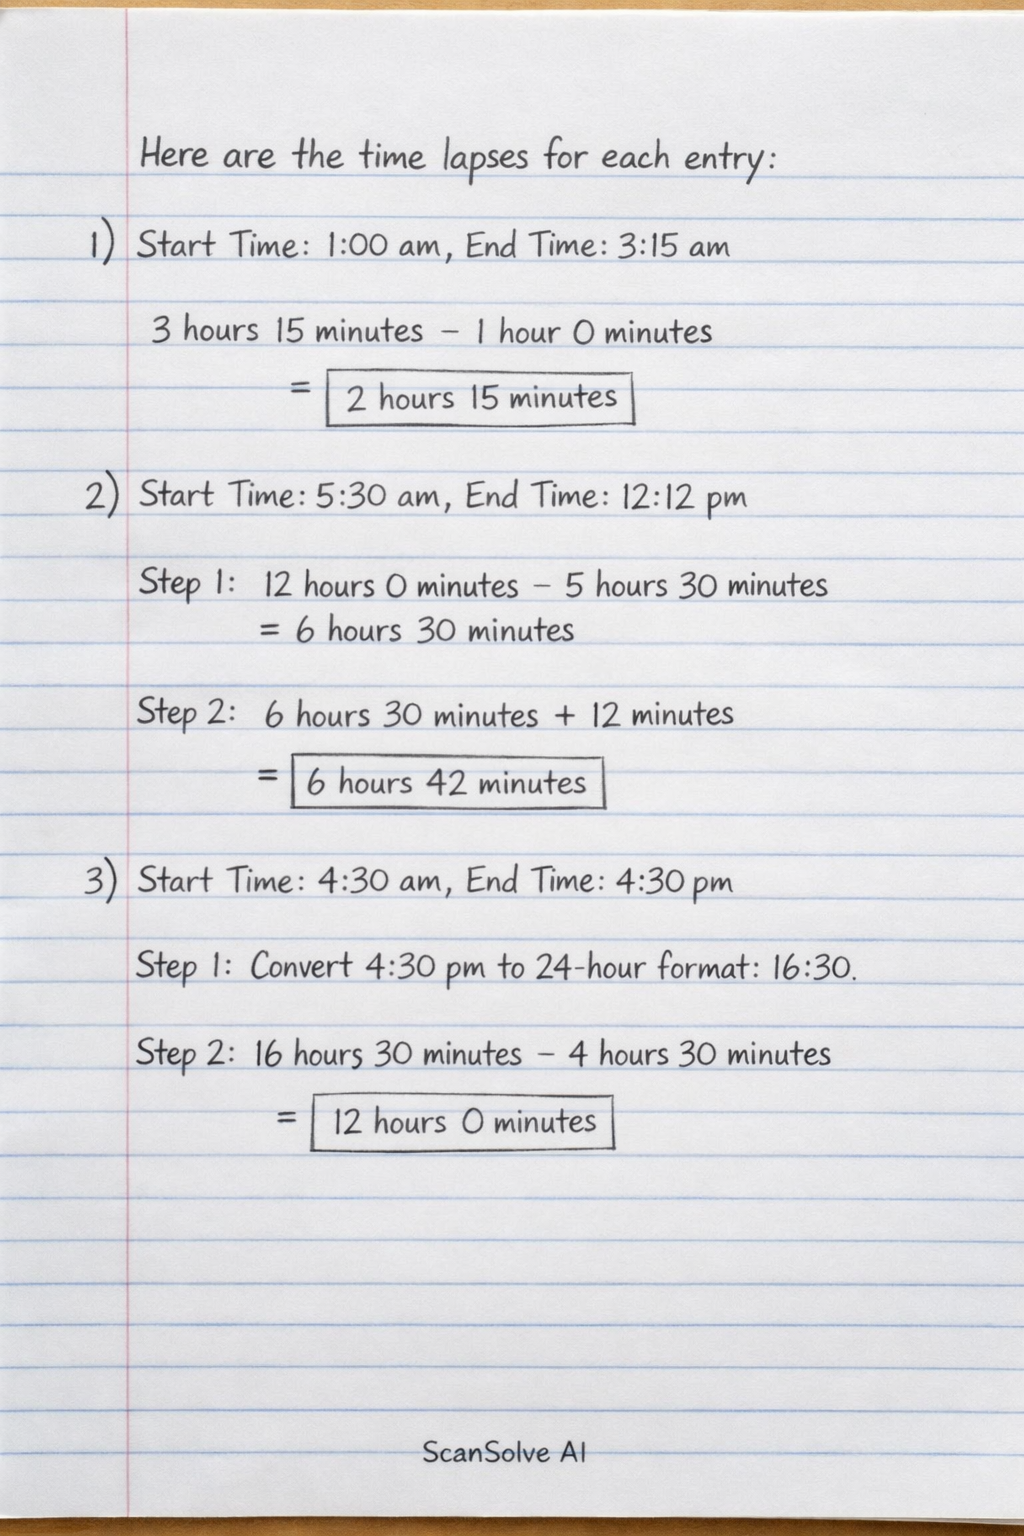 Here are the time lapses for each entry:
1) Start Time: 1:00 am, End Time: 3:15 am
3 hours 15 minutes – 1 hour 0 minutes
= 2 hours 15 minutes
2) Start Time: 5:30 am, End Time: 12:12 pm
Step 1: 12 hours 0 minutes – 5 hours 30 minutes
= 6 hours 30 minutes
Step 2: 6 hours 30 minutes + 12 minutes
= 6 hours 42 minutes
3) Start Time: 4:30 am, End Time: 4:30 pm
Step 1: Convert 4:30 pm to 24-hour format: 16:30.
Step 2: 16 hours 30 minutes – 4 hours 30 minutes
= 12 hours 0 minutes
ScanSolve AI